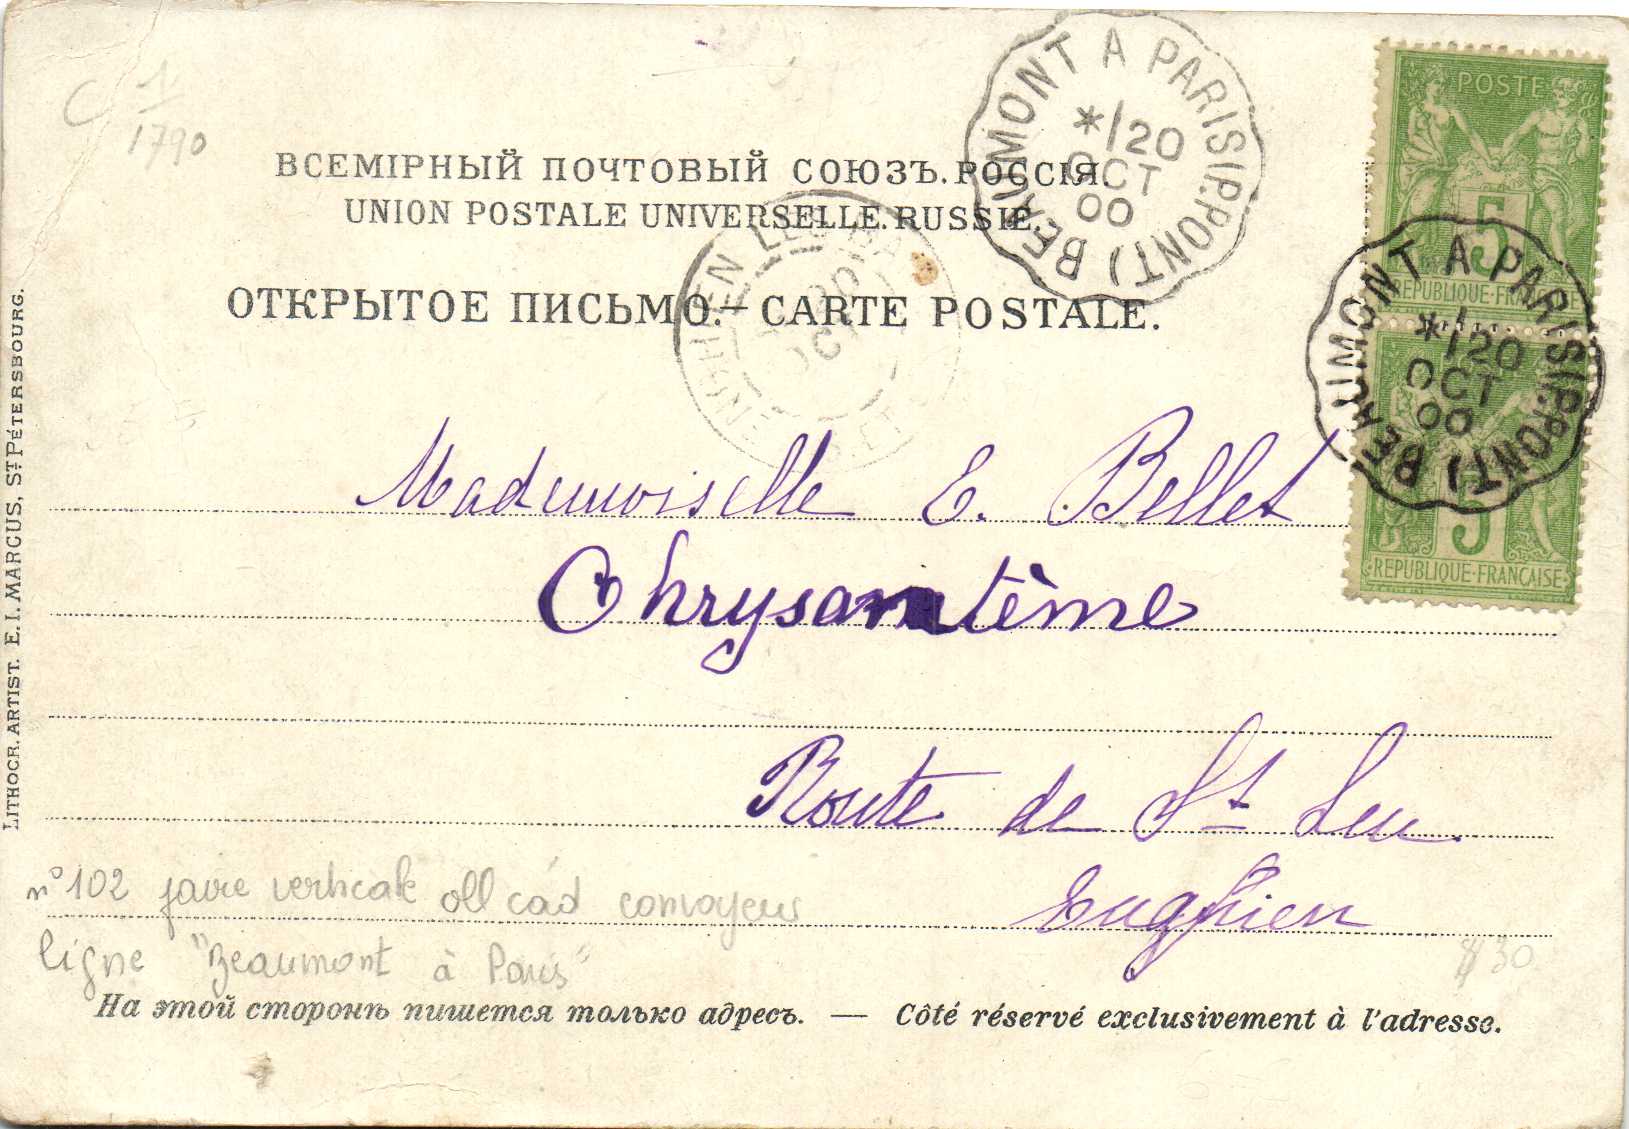 C 1/1790
ВСЕМІРНЫЙ ПОЧТОВЫЙ СОЮЗЪ. РОССІЯ.
UNION POSTALE UNIVERSELLE. RUSSIE.
ОТКРЫТОЕ ПИСЬМО. — CARTE POSTALE.
BEAUMONT A PARIS (P.PONT)
*/20
OCT
00
POSTE
5
REPUBLIQUE·FRANÇAISE
BEAUMONT A PARIS (P.PONT)
*/20
OCT
00
5
REPUBLIQUE·FRANÇAISE
ENGHIEN LES
20
OCT
LITHOGR. ARTIST. E. I. MARCUS, ST PÉTERSBOURG.
Mademoiselle E. Bellet
Chrysantème
Route de St Leu
Enghien
n° 102 paire verticale obl càd convoyeur
ligne "Beaumont à Paris"
30
На этой сторонѣ пишется только адресъ. — Côté réservé exclusivement à l'adresse.